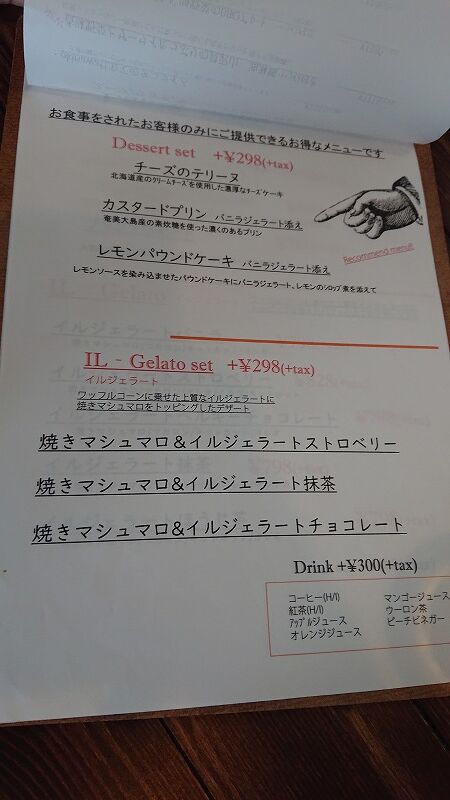 お食事をされたお客様のみにご提供できるお得なメニューです
Dessert set +¥298(+tax)
チーズのテリーヌ
北海道産のクリームチーズを使用した濃厚なチーズケーキ
カスタードプリン バニラジェラート添え
奄美大島産の素炊糖を使った濃くのあるプリン
Recommend menu!!
レモンパウンドケーキ バニラジェラート添え
レモンソースを染み込ませたパウンドケーキにバニラジェラート、レモンのシロップ煮を添えて
IL - Gelato set +¥298(+tax)
イルジェラート
ワッフルコーンに乗せた上質なイルジェラートに
焼きマシュマロをトッピングしたデザート
焼きマシュマロ&イルジェラートストロベリー
焼きマシュマロ&イルジェラート抹茶
焼きマシュマロ&イルジェラートチョコレート
Drink +¥300(+tax)
コーヒー(H/I) マンゴージュース
紅茶(H/I) ウーロン茶
アップルジュース ピーチビネガー
オレンジジュース